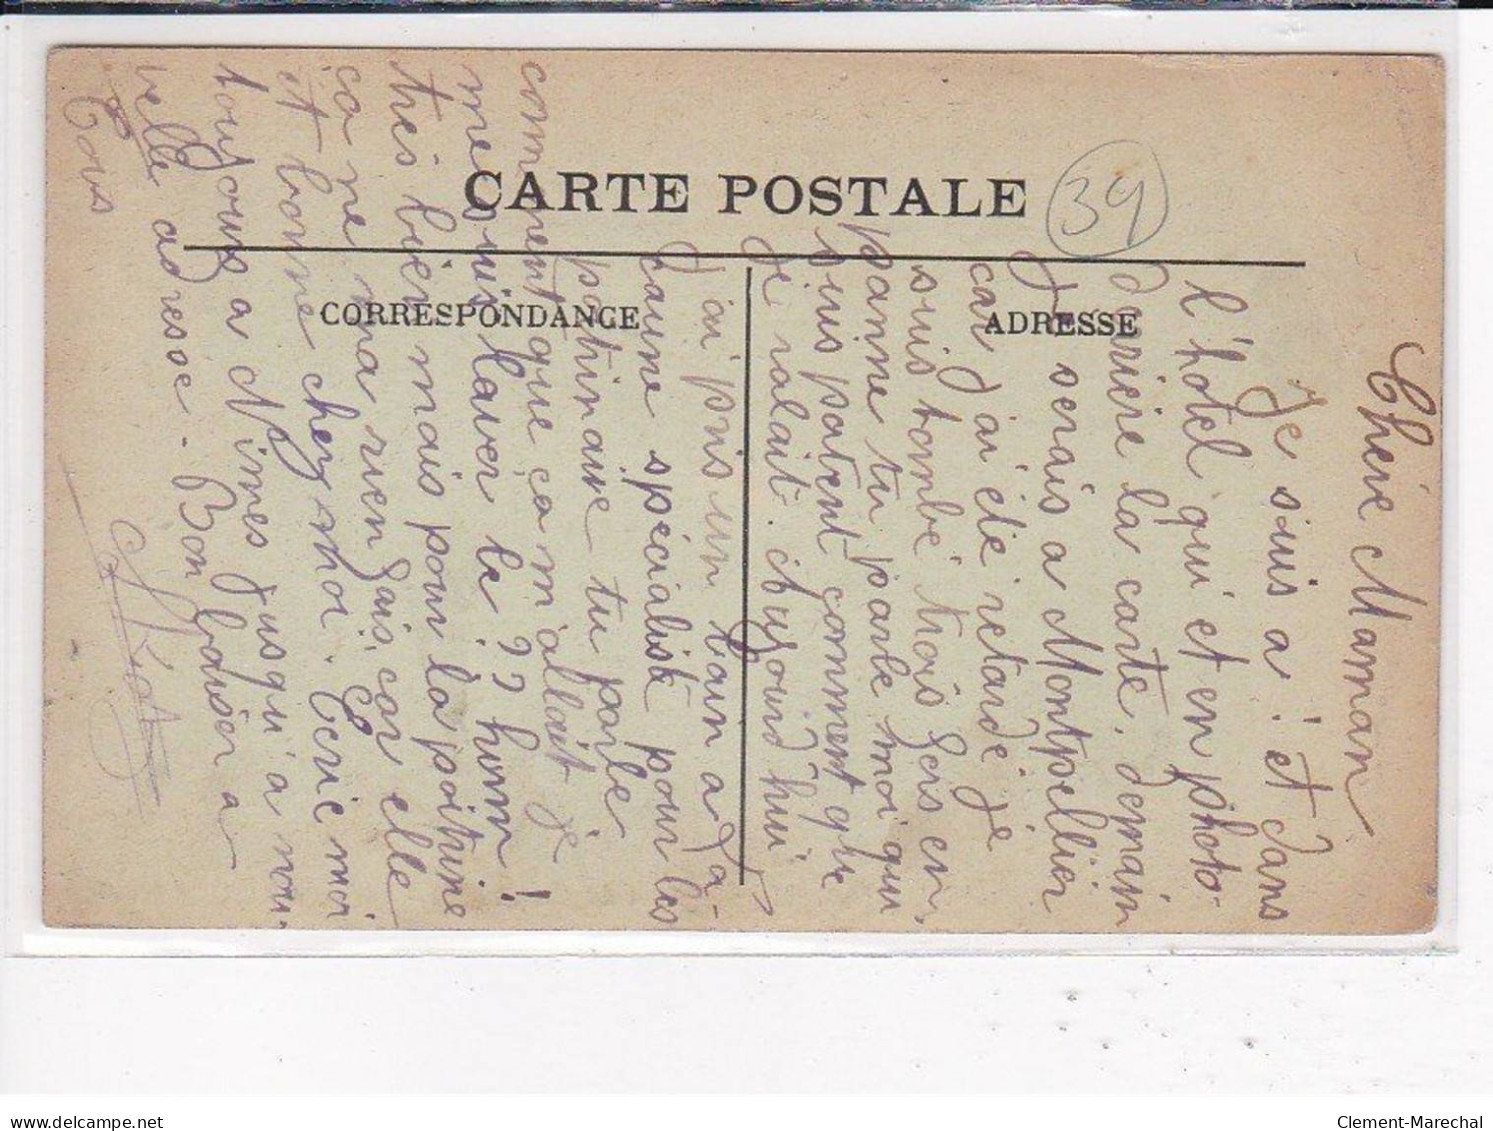 CARTE POSTALE
39
CORRESPONDANCE
ADRESSE
Chère Maman
Je suis a ! et dans
l'hotel qui et en photo-
dariere la carte, demain
Je serais a Montpellier
car j'ai été retardé je
suis tombé trois fois en
panne tu parle moi qui
suis patient comment que
je ralait. Aujourd'hui
J'ai pris un bain a La-
caune spécialisté pour les
patrinaire tu parle
comment que ça m'allait je
me suis laver le ?? hum !
très bien mais pour la poitrine
ça ne m'a rien fais, car elle
et bonne chez moi. Ecrie moi
toujours a Nimes jusqu'a nou-
velle adresse. Bon baiser a
Tous
Clement-Marechal
delcampe.net